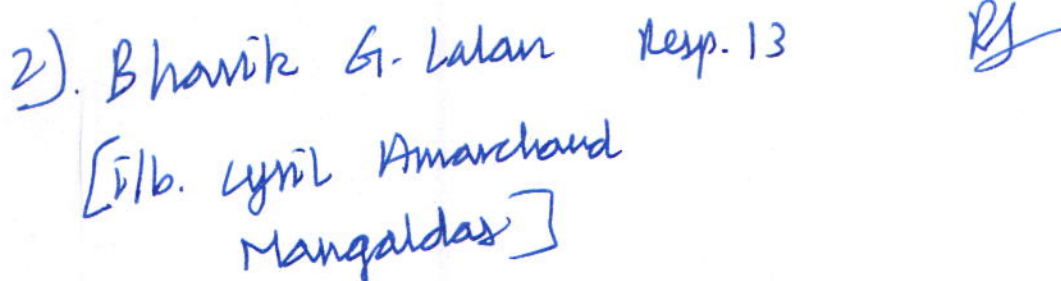 2). Bhavik G. Lalan Resp. 13
[i/b. Cyril Amarchand
Mangaldas]